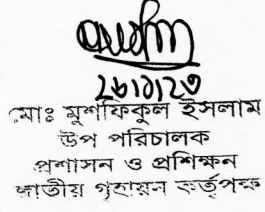 ২৮।১।২৩
মোঃ মুশফিকুল ইসলাম
উপ পরিচালক
প্রশাসন ও প্রশিক্ষন
জাতীয় গৃহায়ন কর্তৃপক্ষ